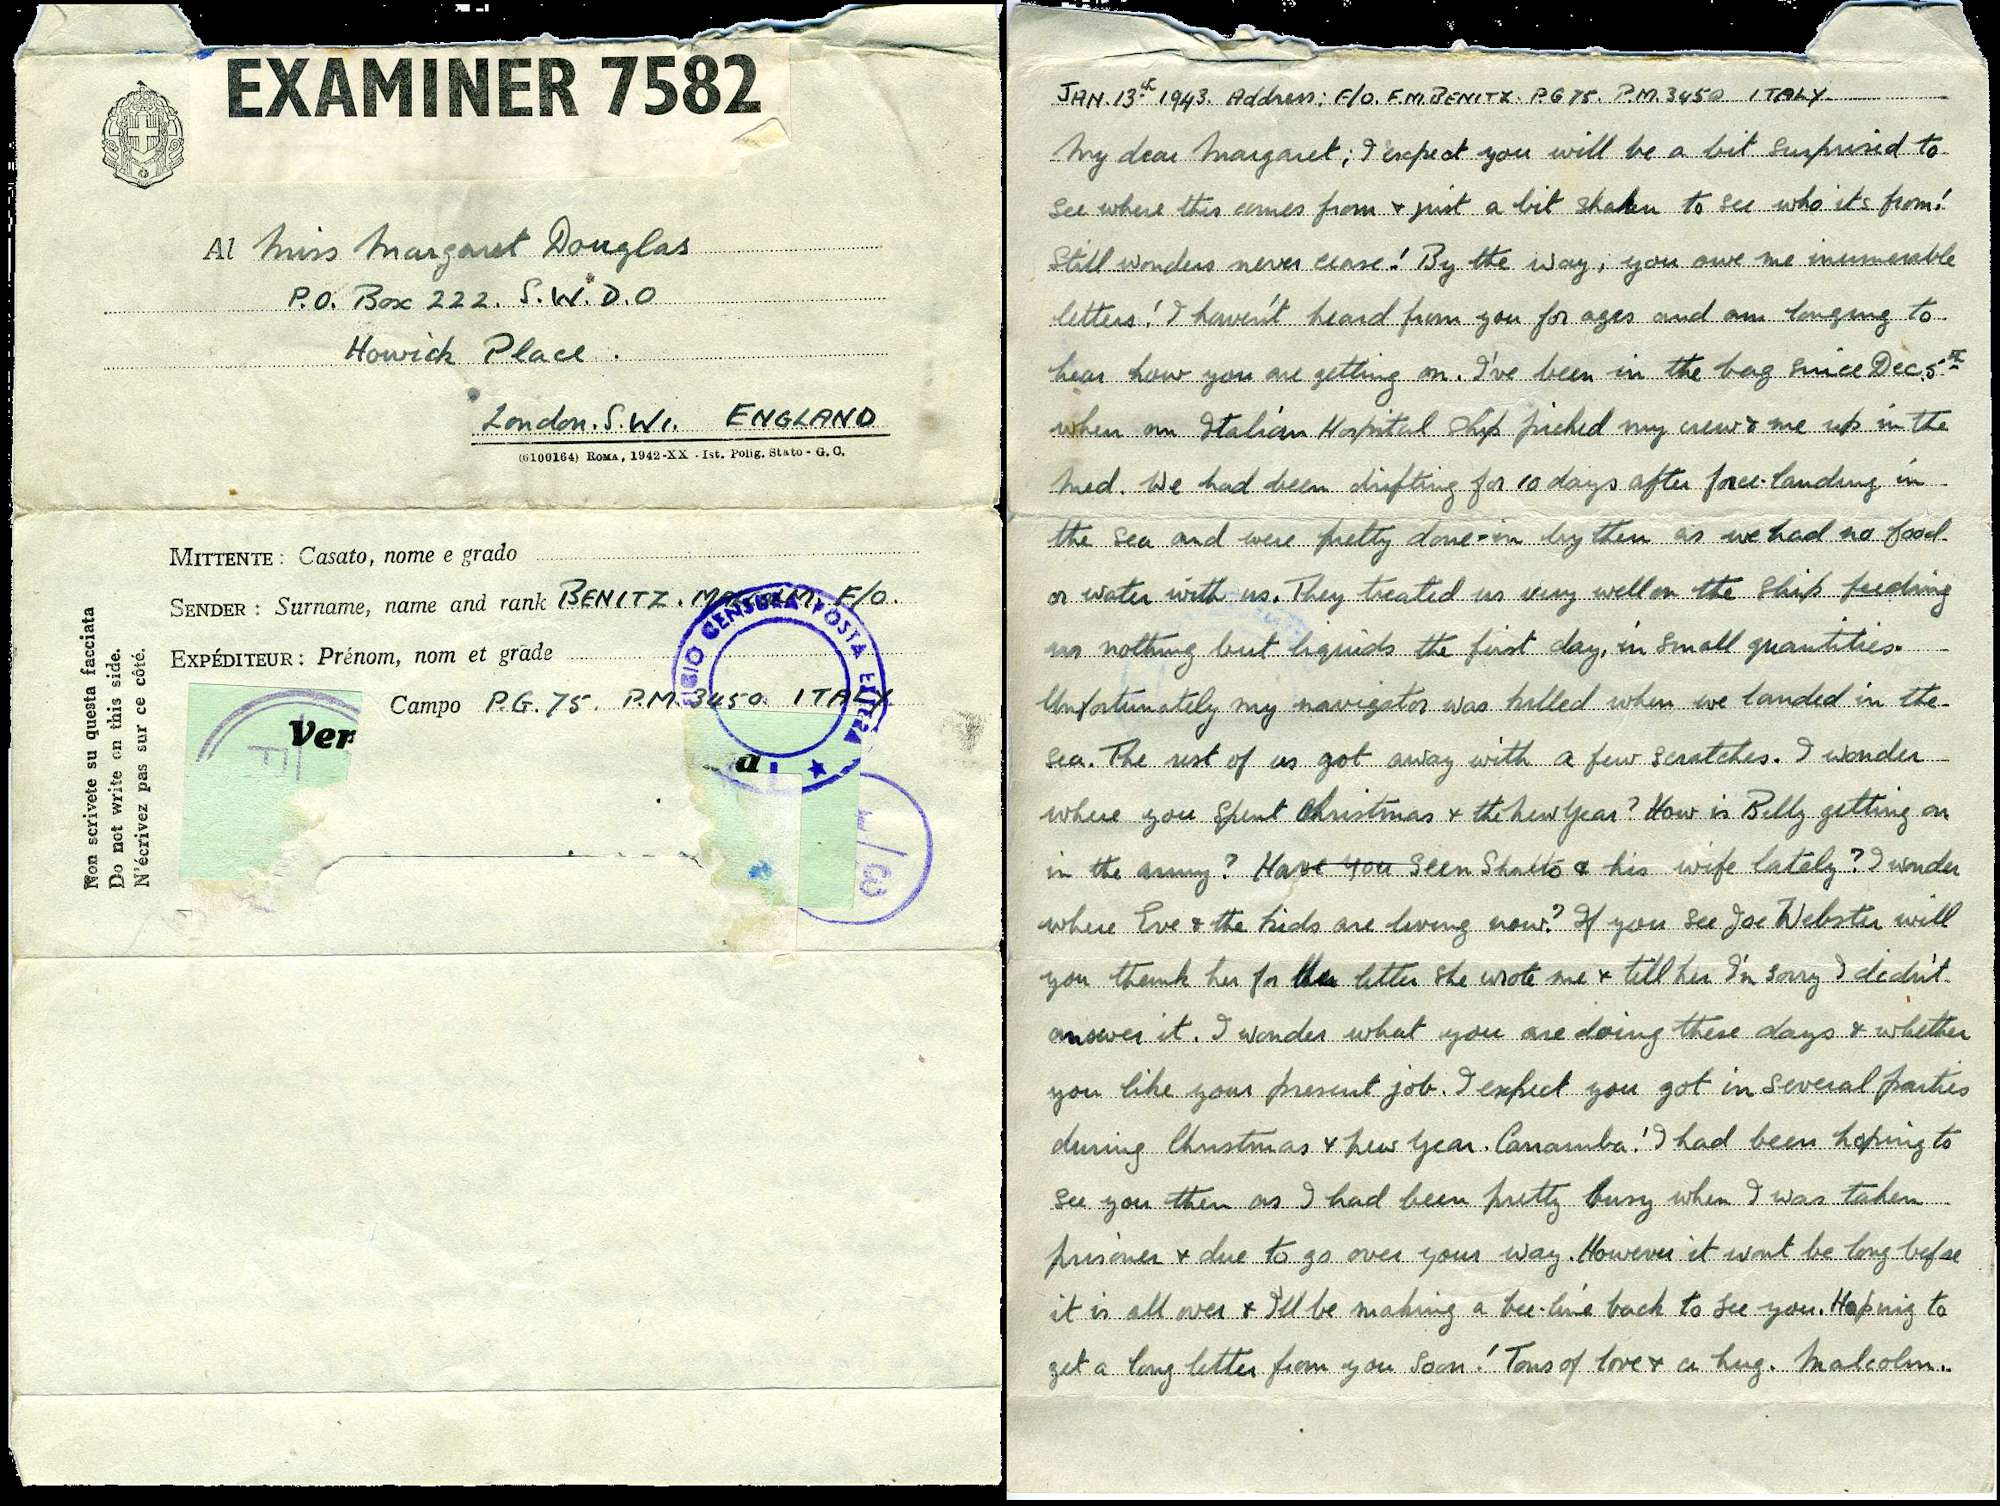 EXAMINER 7582
Al Miss Margaret Douglas
P.O. Box 222. S.W.D.O
Howick Place.
London. S.W1. ENGLAND
(6100164) ROMA, 1942-XX - Ist. Polig. Stato - G. C.
MITTENTE: Casato, nome e grado
SENDER: Surname, name and rank BENITZ. MALCOLM. F/O.
EXPÉDITEUR: Prénom, nom et grade
Campo P.G. 75. P.M. 3450. ITALY
Non scrivete su questa facciata
Do not write on this side.
N'écrivez pas sur ce côté.
CENSURA POSTA ESTERA
Ver
JAN. 13th 1943. Address: F/O. F.M. BENITZ. P.G 75. P.M. 3450 ITALY
My dear Margaret; I expect you will be a bit surprised to
see where this comes from & just a bit shaken to see who its from!
Still wonders never cease! By the way, you owe me inumerable
letters! I haven't heard from you for ages and am longing to
hear how you are getting on. I've been in the bag since Dec. 5th
when an Italian Hospital Ship picked my crew & me up in the
Med. We had been drifting for 10 days after force-landing in
the sea and were pretty done-in by then as we had no food
or water with us. They treated us very well on the ship feeding
us nothing but liquids the first day, in small quantities.
Unfortunately my navigator was killed when we landed in the
sea. The rest of us got away with a few scratches. I wonder
where you spent Christmas & the New Year? How is Billy getting on
in the army? Have you seen Shalto & his wife lately? I wonder
where Eve & the kids are living now? If you see Joe Webster will
you thank her for the letter she wrote me & tell her I'm sorry I didn't
answer it. I wonder what you are doing these days & whether
you like your present job. I expect you got in several parties
during Christmas & New Year. Carramba! I had been hoping to
see you then as I had been pretty busy when I was taken
prisoner & due to go over your way. However it wont be long before
it is all over & I'll be making a bee-line back to see you. Hoping to
get a long letter from you soon! Tons of love & a hug. Malcolm.